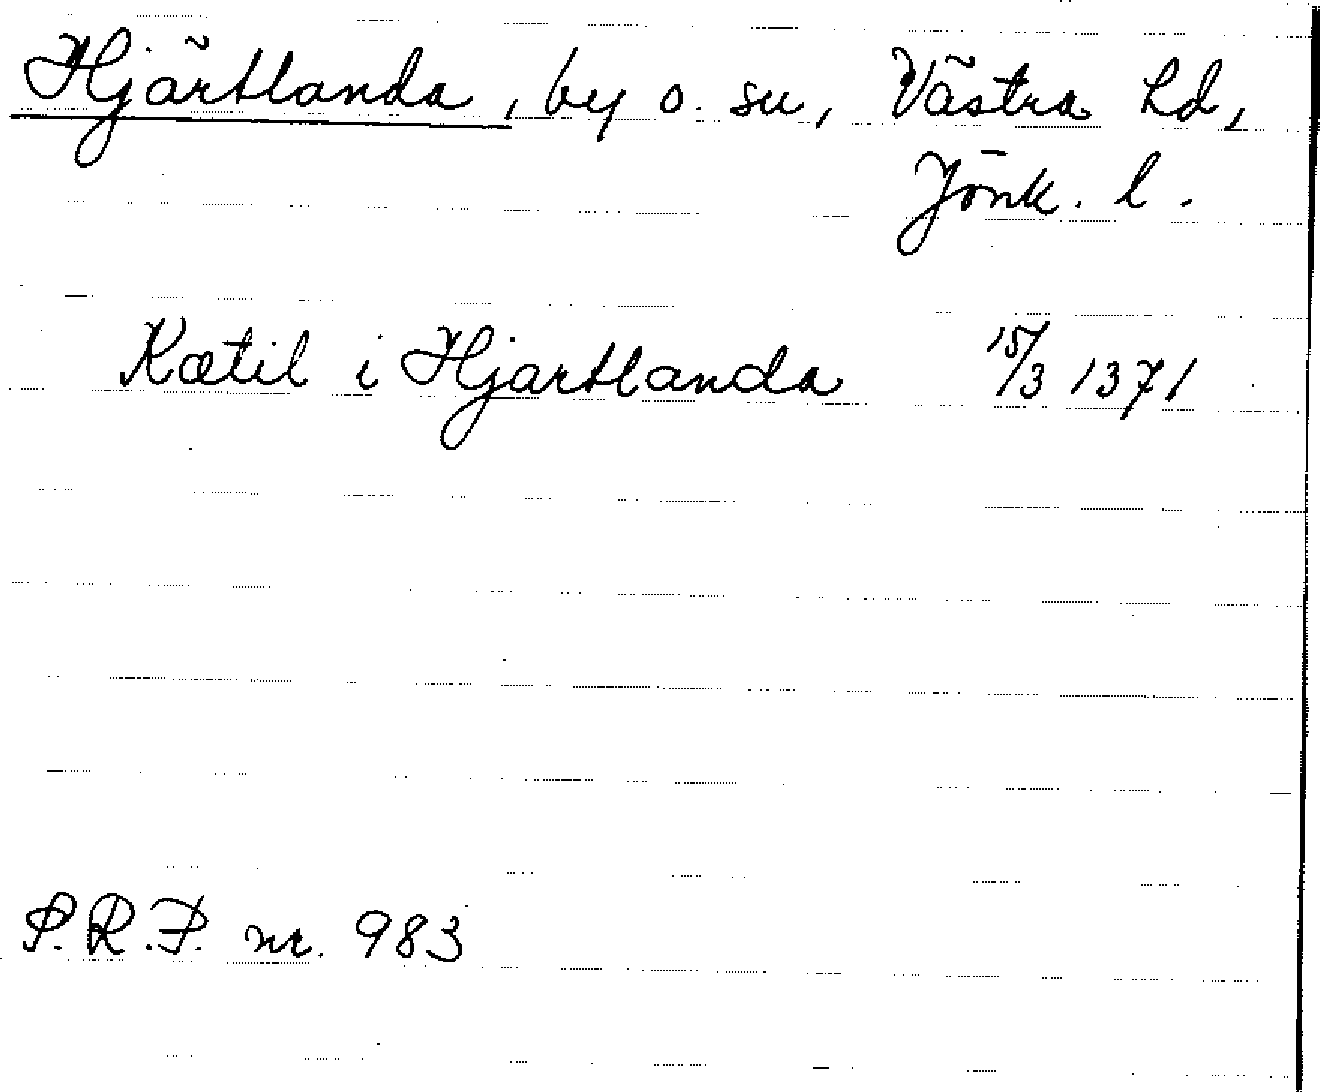 Hjärtlanda, by o. sn, Västra hd,
Jönk. l.
Kætil i Hjartlanda 15/3 1371
S.R.P. nr. 983